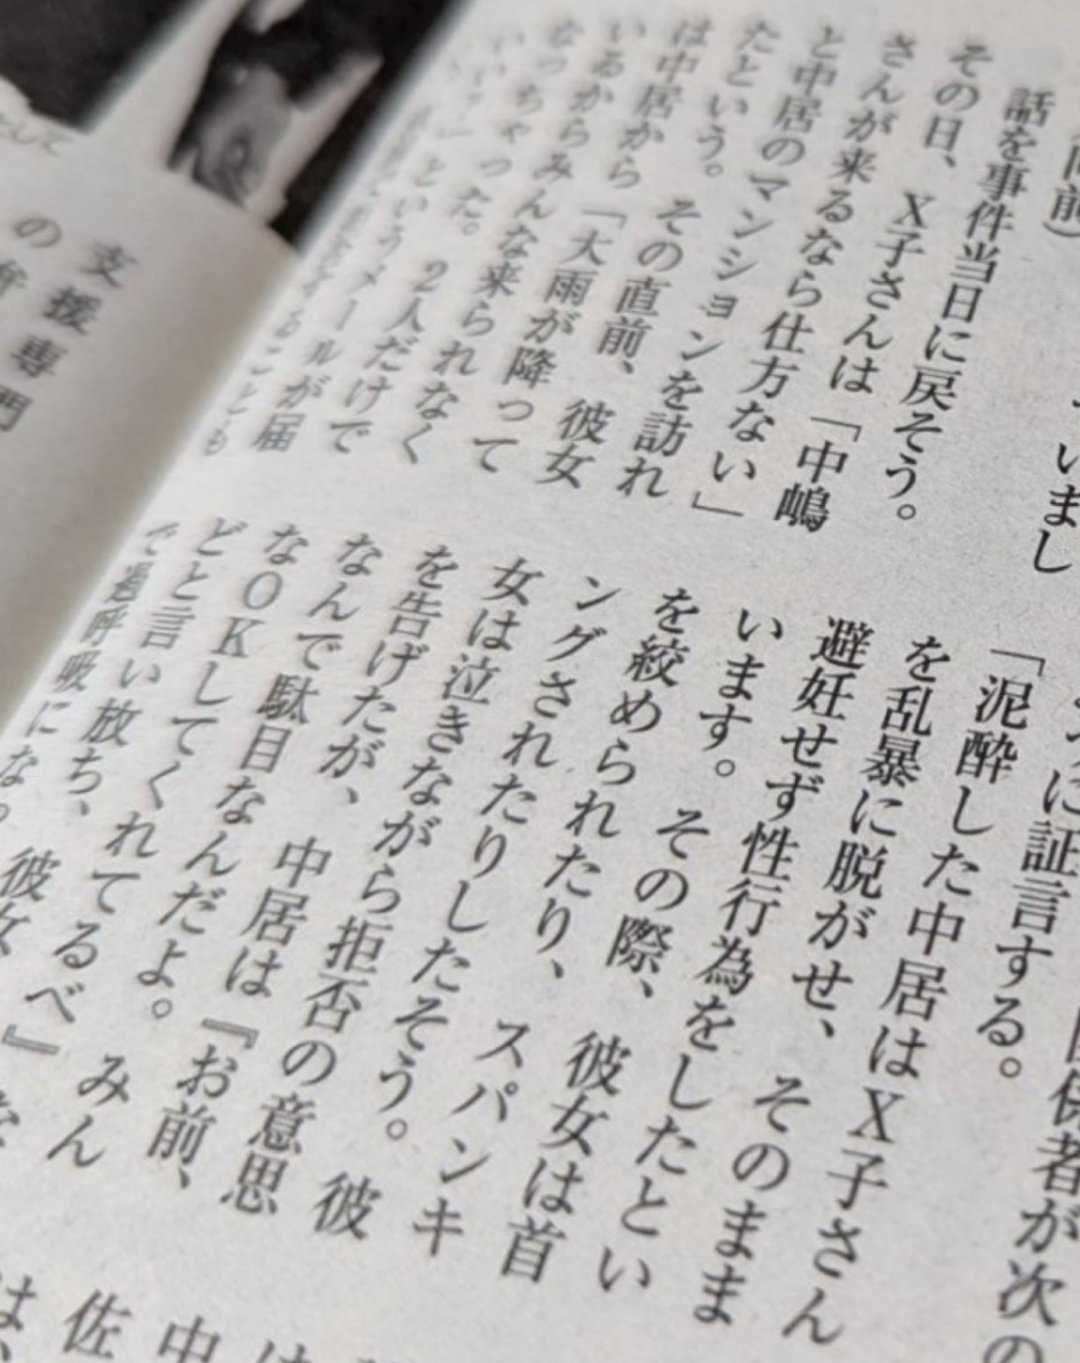 同前）
いまし
話を事件当日に戻そう。
その日、Ｘ子さんは「中嶋
さんが来るなら仕方ない」
と中居のマンションを訪れ
たという。その直前、彼女
は中居から「大雨が降って
いるからみんな来られなく
なっちゃった。２人だけで
というメールが届
に証言する。
係者が次の
「泥酔した中居はＸ子さん
を乱暴に脱がせ、そのまま
避妊せず性行為をしたとい
います。その際、彼女は首
を絞められたり、スパンキ
ングされたりしたそう。彼
女は泣きながら拒否の意思
を告げたが、中居は『お前、
なんで駄目なんだよ。みん
なＯＫしてくれてるべ』
どと言い放ち、彼女
で過呼吸にな
支援専門
の
佐
中
は